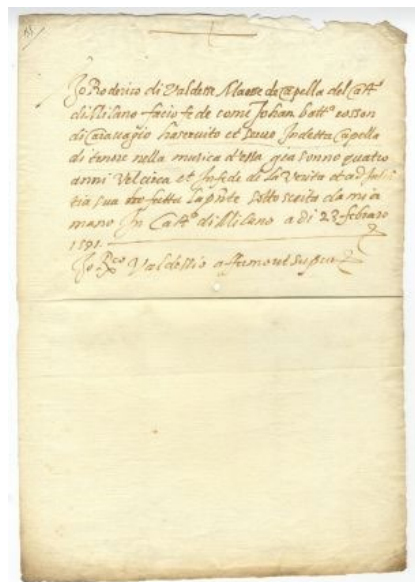 Jo Rodrico di Valdessi Maestre de Capella del Castº
di Milano facio fede come Johan batta
di Caravagio ha servito et serve In detta Capella
di tenore nella musica d'essa gia sonno quatro
anni Vel circa et In fede de La Verita et ad Justi
tia sua ho fatta La pñte sotto scrita da mia
mano In Castº di Milano a di 23 febraro
1591.
Jo Rco Valdessio affermo ut supra